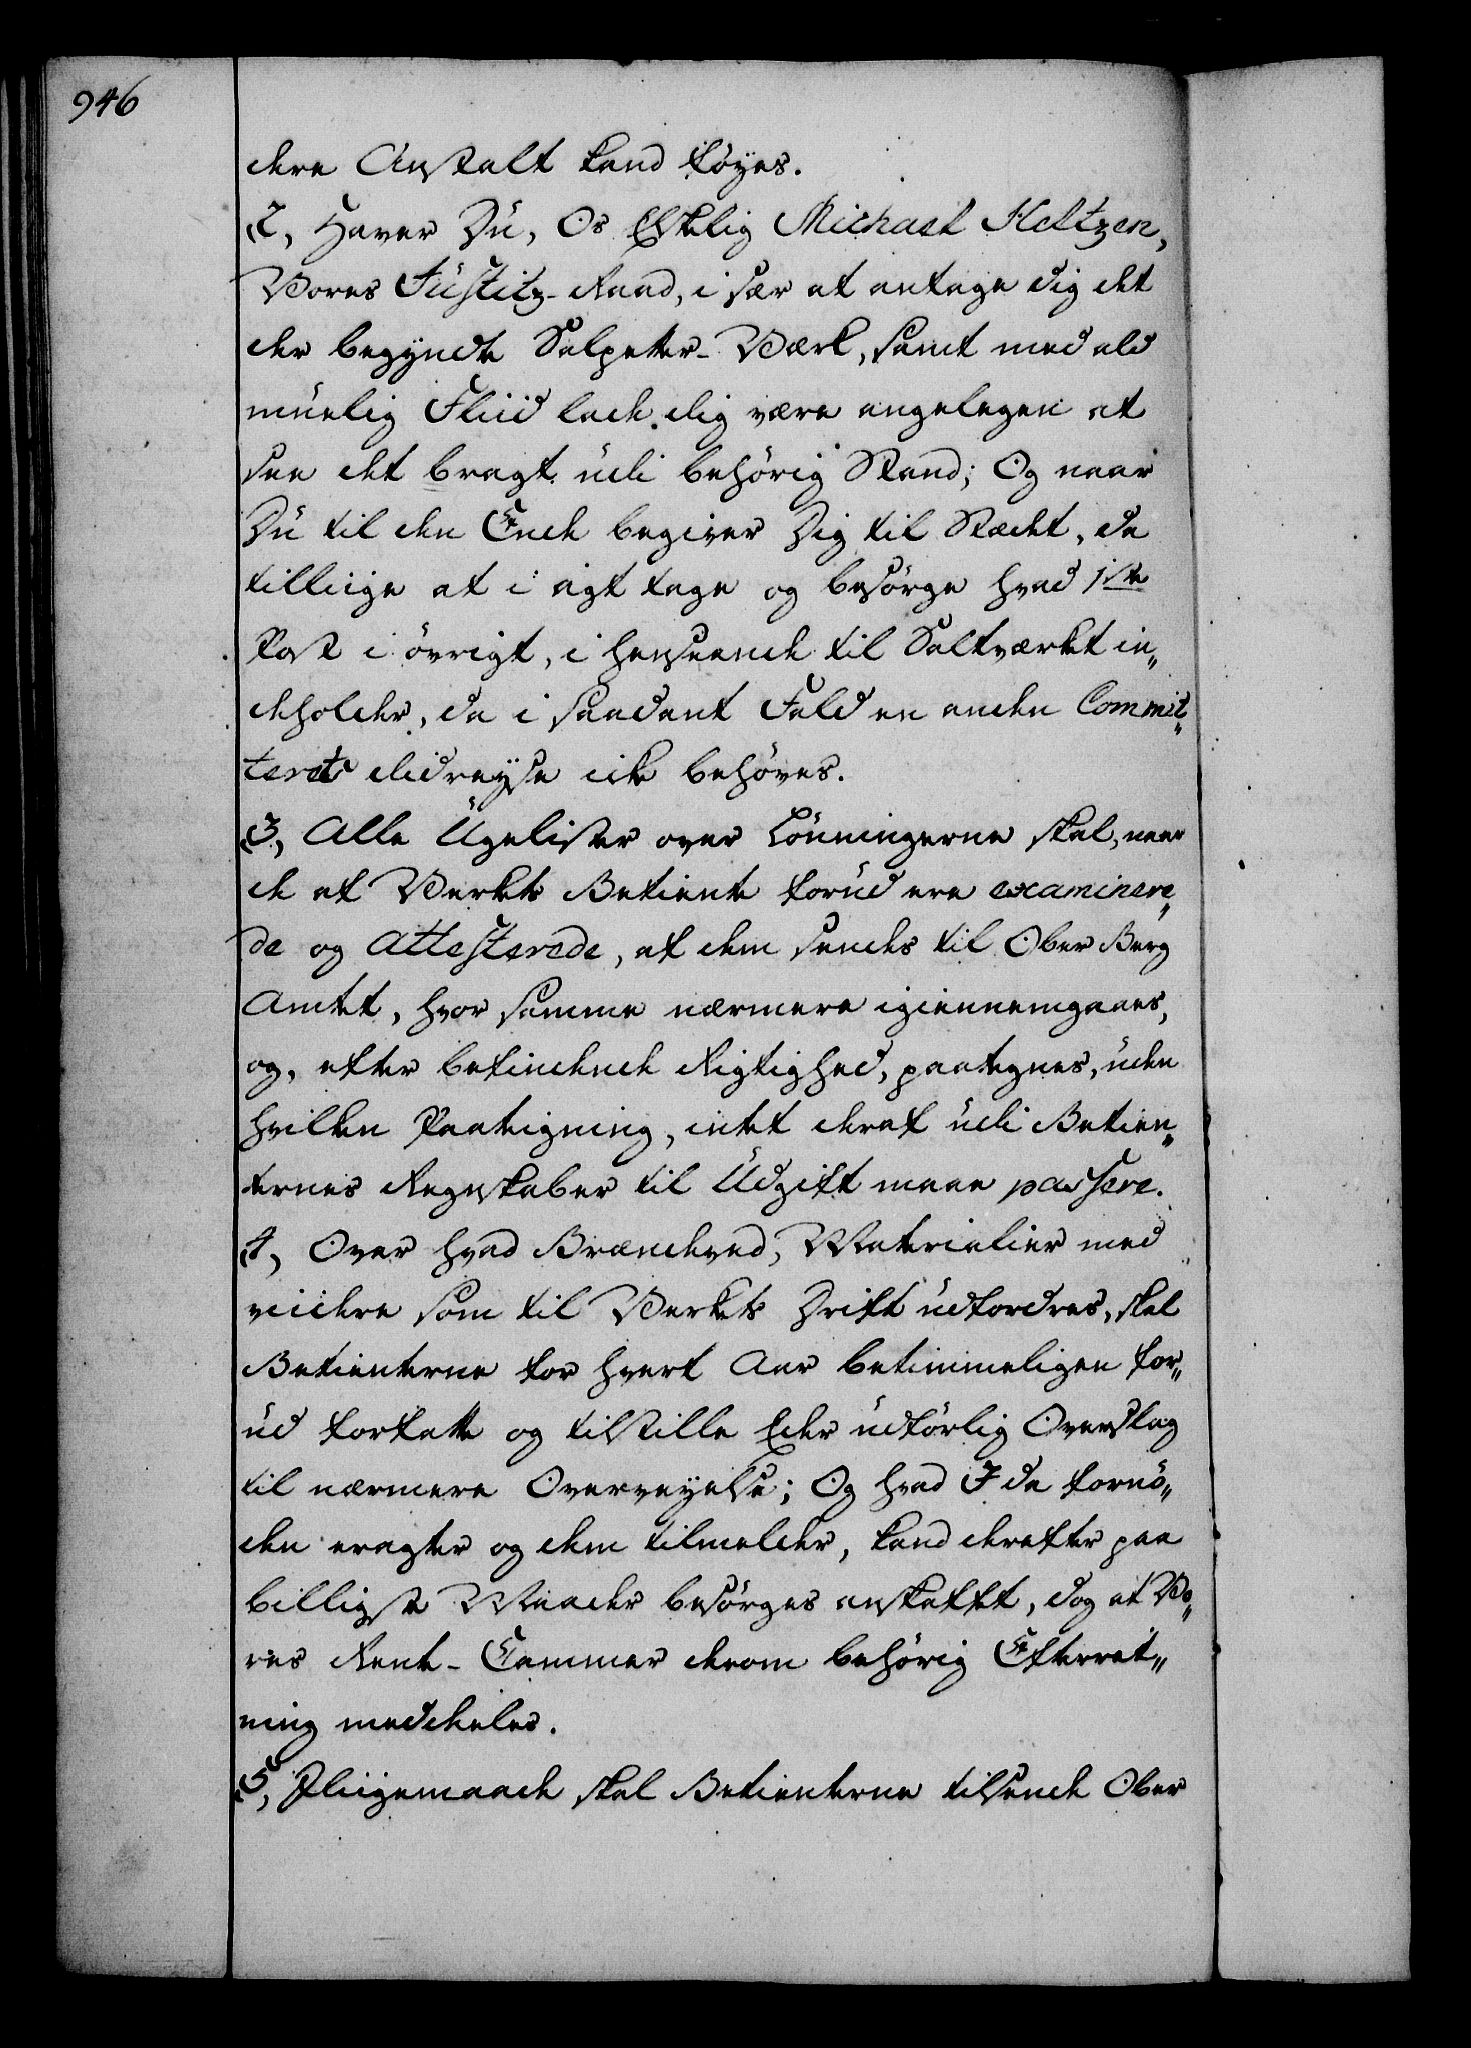 946
dere Anstalt kand föyes.
2, Haver Du, Os Elskelig Michael Heltzen,
Vores Justitz-Raad, i sær at antage dig det
der begyndte Salpetter-Værk, samt med ald
muelig Fliid lade dig være angelegen at
see det bragt udi behörig Stand; Og naar
Du til den Ende begiver Dig til Stædet, da
tilliige at i agt tage og besörge hvad 1ste
Post i övrigt, i henseende til Saltværket in„
deholder, da i saadant Fald en anden Commit„
terets didreyse icke behöves.
3, Alle Ugelister over Lönningerne skal, naar
de af Verkets Betiente forud ere examinere„
de og Attesterede, af dem sendes til Ober Berg
Amtet, hvor samme nærmere igiennemgaaes,
og, efter befindende Rigtighed, paategnes, uden
hvilken Paategning, intet deraf udi Betien„
ternes Regnskaber til Udgift maae passere.
4, Over hvad Brændeved, Materialier med
viidere som til Verkets Drift udfordres, skal
Betienterne for hvert Aar betimmeligen for„
ud forfatte og tilstille Eder udförlig Overslag
til nærmere Overveyelse; Og hvad I da fornö„
den eragter og dem tilmelder, kand derefter paa
billigste Maader besörges anskaffet, dog at Vo„
res Rente-Cammer derom behörig Efterret„
ning meddeles.
5, Jliigemaade skal Betienterne tilsende Ober